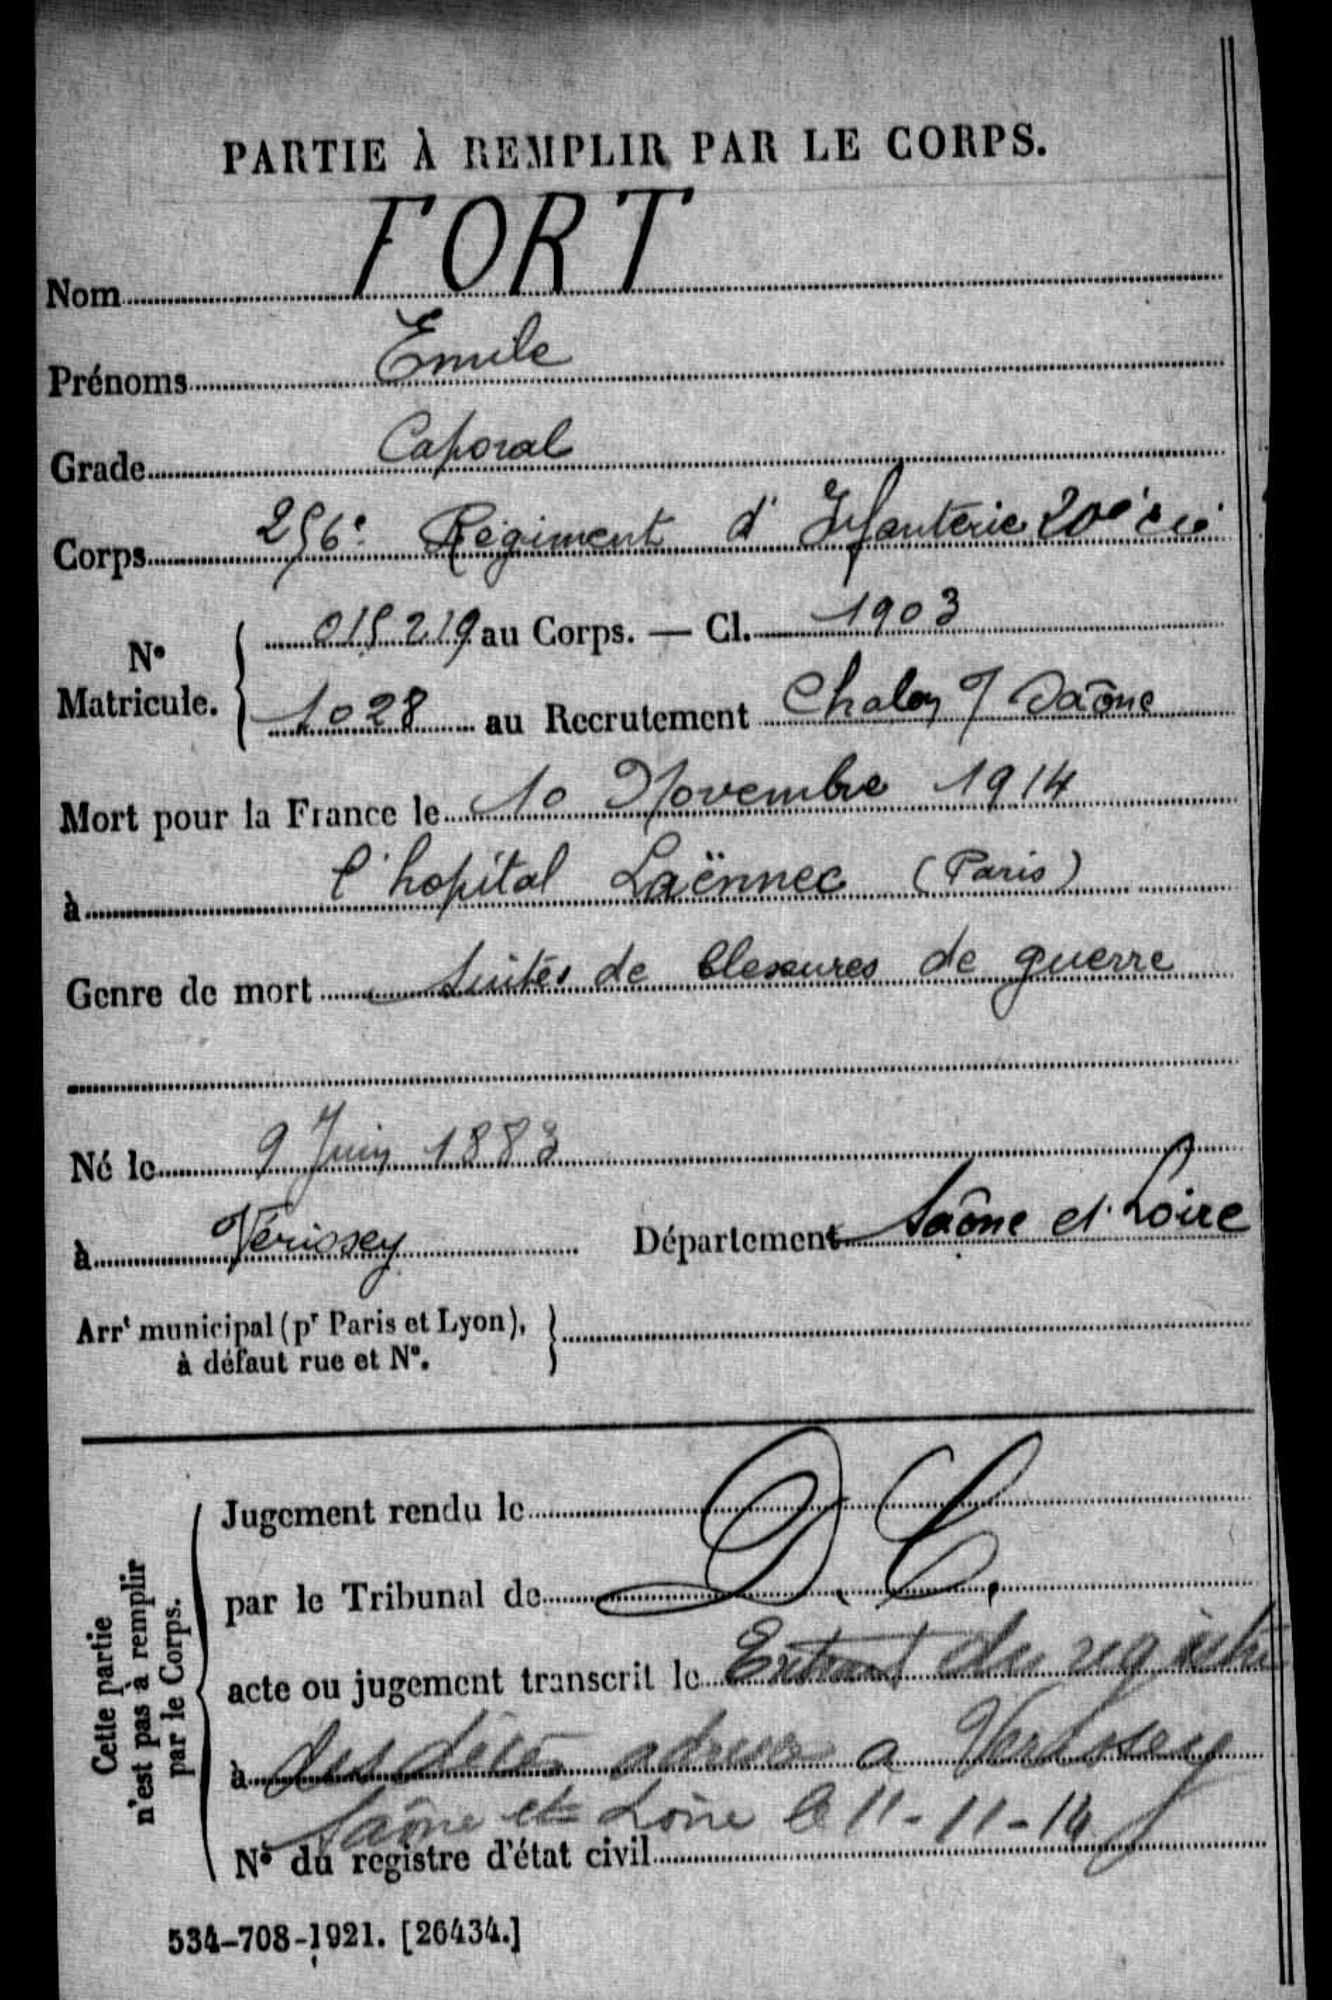 PARTIE À REMPLIR PAR LE CORPS.
Nom FORT
Prénoms Emile
Grade Caporal
Corps 256e Régiment d' Infanterie 20e Cie
No Matricule. 015219 au Corps. — Cl. 1903
1028 au Recrutement Chalon s/ Saône
Mort pour la France le 10 Novembre 1914
à l'hopital Laënnec (Paris)
Genre de mort Suites de blessures de guerre
Né le 9 Juin 1883
à Vérissey Département Saône et Loire
Arrt municipal (pr Paris et Lyon),
à défaut rue et No.
Cette partie
n'est pas à remplir
par le Corps.
Jugement rendu le
par le Tribunal de D. C.
acte ou jugement transcrit le Extrait du registre
à des décès adressé a Verissey
Saône et Loire le 11-11-14
No du registre d'état civil
534-708-1921. [26434.]